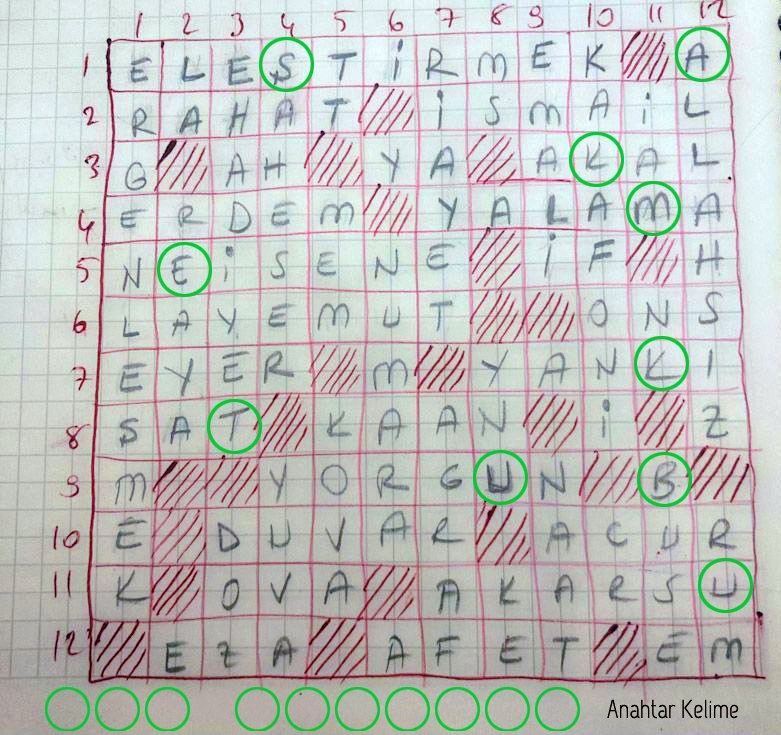 1 2 3 4 5 6 7 8 9 10 11 12
1 E L E S T İ R M E K A
2 R A H A T İ S M A İ L
3 G A H Y A A K A L
4 E R D E M Y A L A M A
5 N E İ S E N E İ F H
6 L A Y E M U T O N S
7 E Y E R M Y A N K I
8 S A T K A A N İ Z
9 M Y O R G U N B
10 E D U V A R A C U R
11 K O V A A K A R S U
12 E Z A A F E T E M
Anahtar Kelime